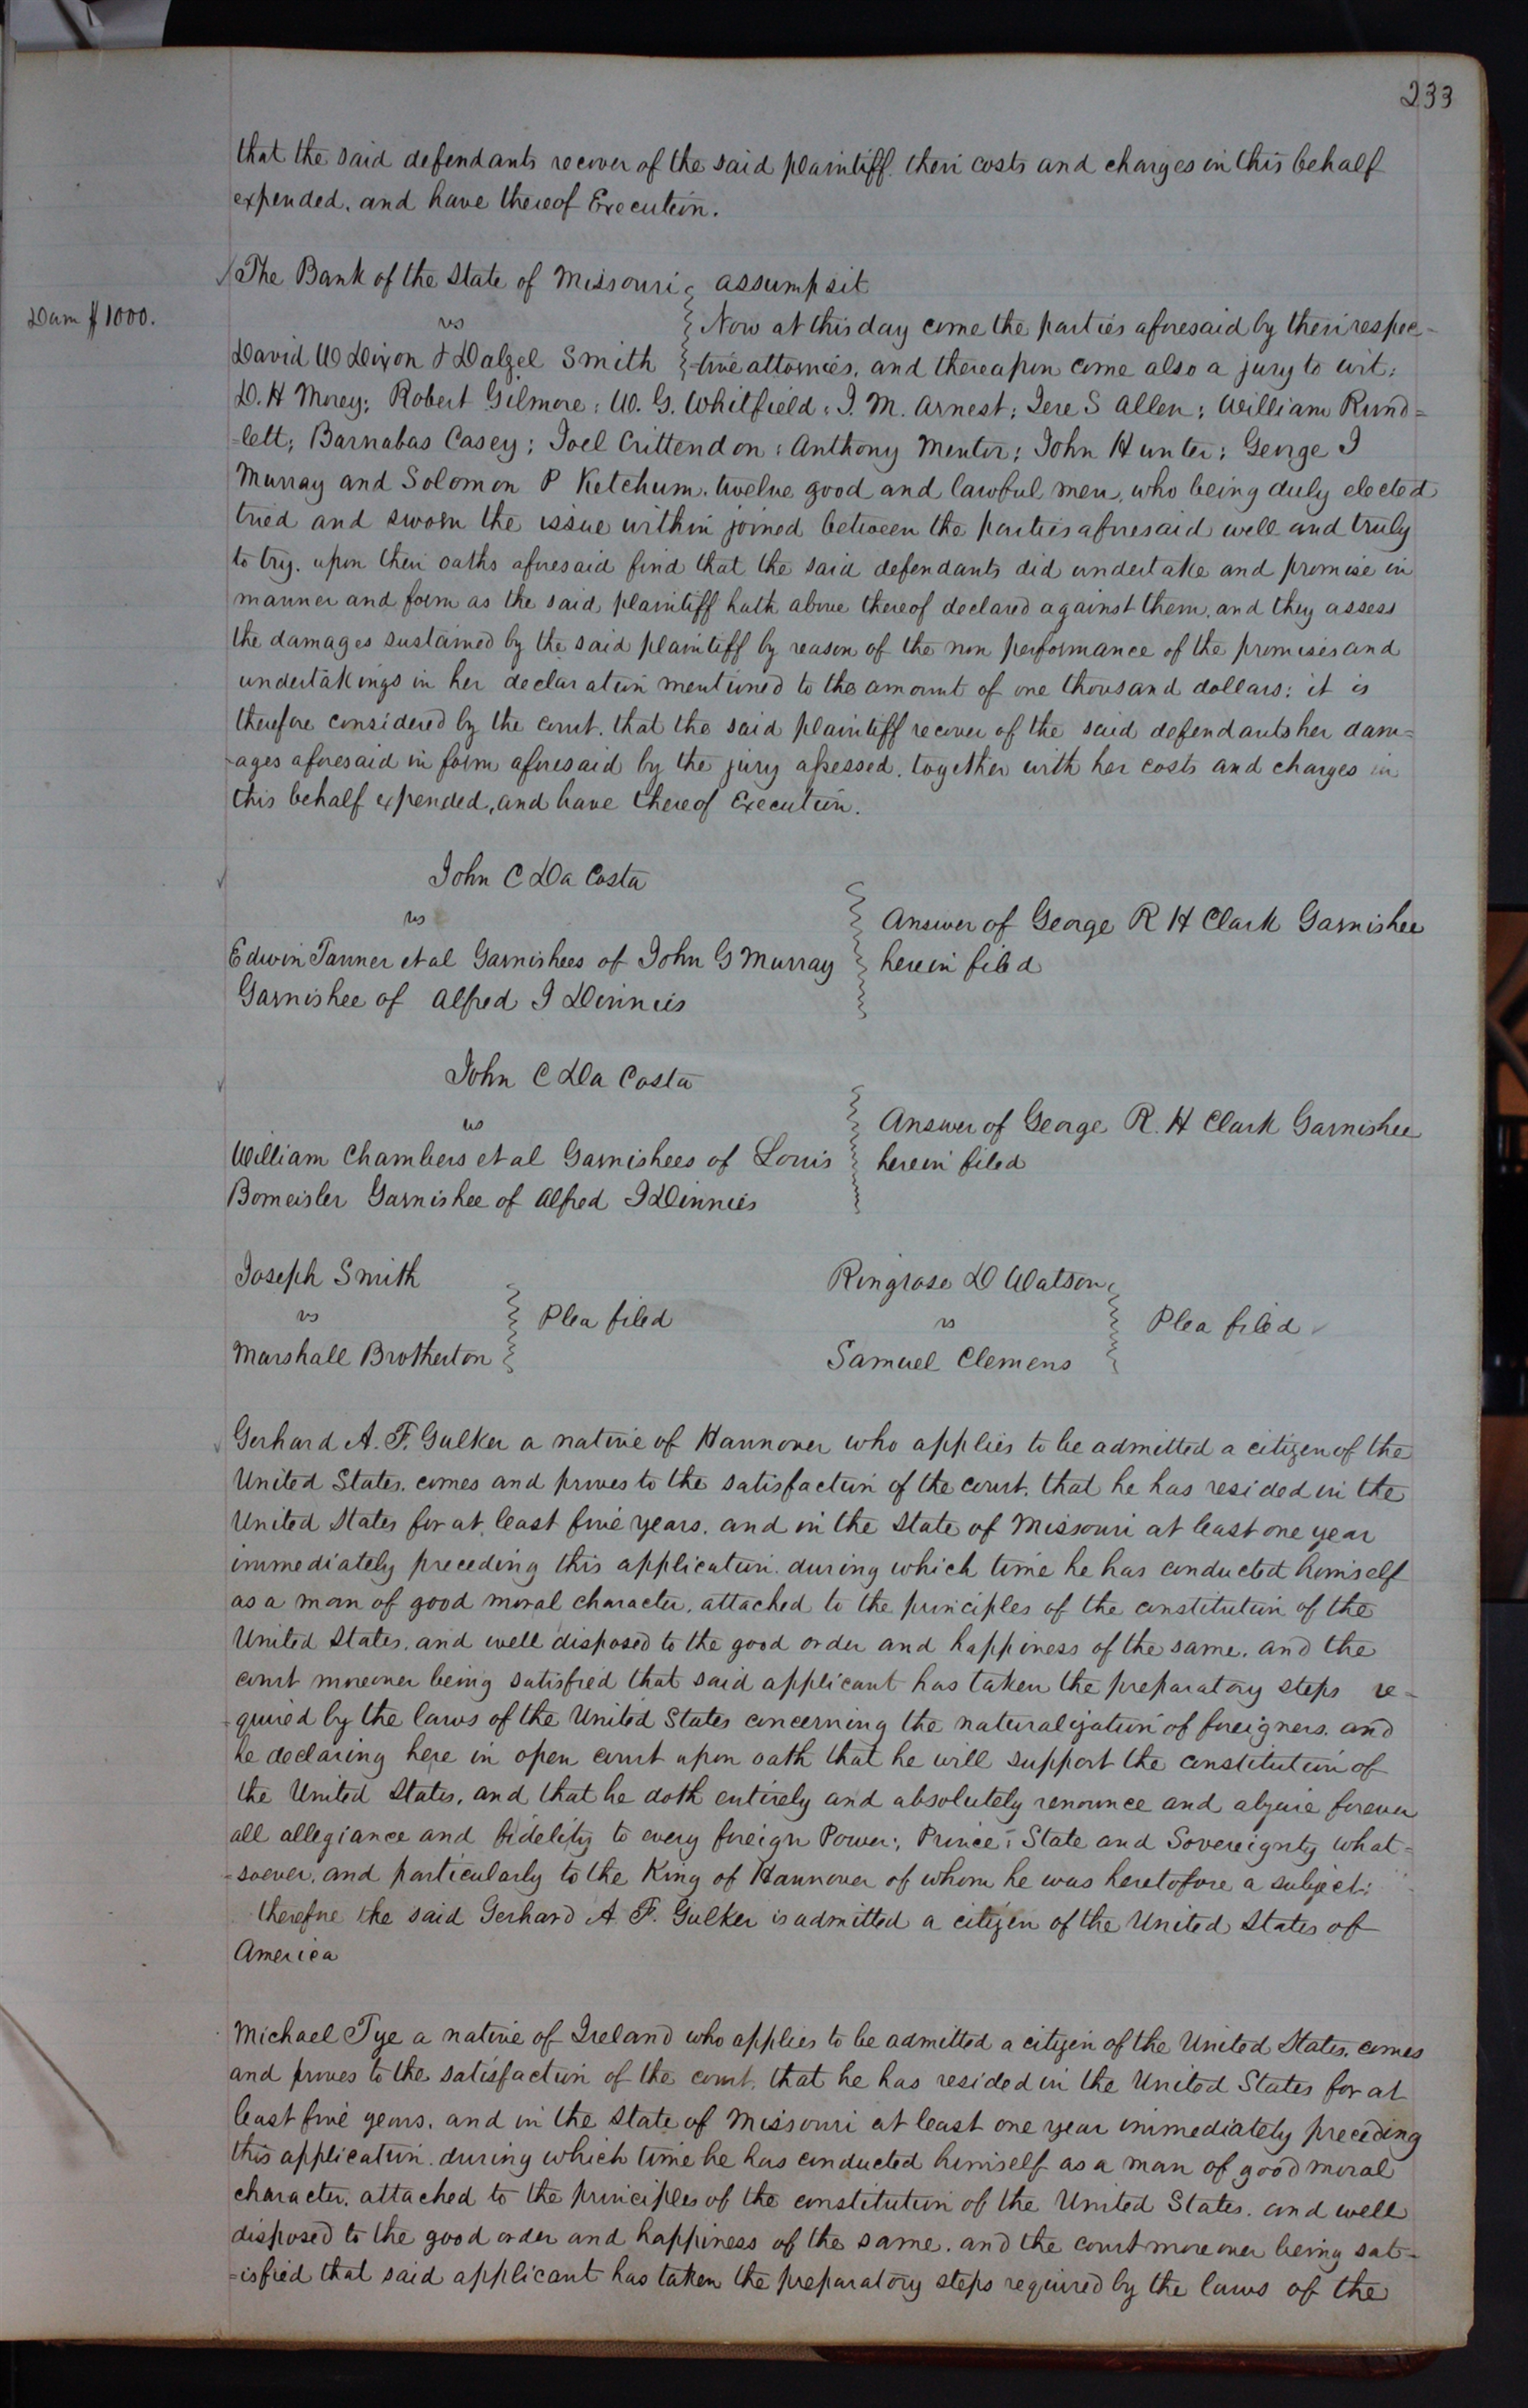 233
that the said defendants recover of the said plaintiff. their costs and charges in this behalf
expended. and have thereof Execution.
The Bank of the State of Missouri
vs
David W Dixon & Dalzel Smith
assumpsit
Dam $1000.
Now at this day come the parties aforesaid by their respec-
-tive attornies. and thereupon come also a jury to wit:
D. H Morey; Robert Gilmore; W. G. Whitfield; I. M. Arnest; Jere S Allen; William Rund=
=lett; Barnabas Casey; Joel Crittendon; Anthony Menter; John Hunter; George J
Murray and Solomon P Ketchum. twelve good and lawful men, who being duly elected
tried and sworn the issue within joined between the parties aforesaid well and truly
to try. upon their oaths aforesaid find that the said defendants did undertake and promise in
manner and form as the said plaintiff hath above thereof declared against them, and they assess
the damages sustained by the said plaintiff by reason of the non performance of the promises and
undertakings in her declaration mentioned to the amount of one thousand dollars; it is
therefore considered by the court. that the said plaintiff recover of the said defendants her dam=
-ages aforesaid in form aforesaid by the jury assessed. together with her costs and charges in
this behalf expended, and have thereof Execution.
John C Da Costa
vs
Edwin Tanner et al Garnishees of John G Murray
Garnishee of Alfred J Dinnies
Answer of George R H Clark Garnishee
herein filed
John C Da Costa
vs
William Chambers et al Garnishees of Louis
Bomeisler Garnishee of Alfred J Dinnies
Answer of George R. H Clark Garnishee
herein filed
Joseph Smith
vs
Marshall Brotherton
Plea filed
Ringrose D Watson
vs
Samuel Clemens
Plea filed
Gerhard A. F. Gulker a native of Hannover who applies to be admitted a citizen of the
United States. comes and proves to the satisfaction of the court. that he has resided in the
United States for at least five years. and in the State of Missouri at least one year
immediately preceding this application. during which time he has conducted himself
as a man of good moral character. attached to the principles of the constitution of the
United States. and well disposed to the good order and happiness of the same. and the
court moreover being satisfied that said applicant has taken the preparatory steps re-
-quired by the laws of the United States concerning the naturalization of foreigners. and
he declaring here in open court upon oath that he will support the constitution of
the United States, and that he doth entirely and absolutely renounce and abjure forever
all allegiance and fidelity to every foreign Power; Prince; State and Sovereignty what=
-soever. and particularly to the King of Hannover of whom he was heretofore a subject;
therefore the said Gerhard A. F. Gulker is admitted a citizen of the United States of
America
Michael Tye a native of Ireland who applies to be admitted a citizen of the United States. comes
and proves to the satisfaction of the court. that he has resided in the United States for at
least five years. and in the State of Missouri at least one year immediately preceding
this application. during which time he has conducted himself as a man of good moral
character. attached to the principles of the constitution of the United States. and well
disposed to the good order and happiness of the same. and the court moreover being sat-
=isfied that said applicant has taken the preparatory steps required by the laws of the